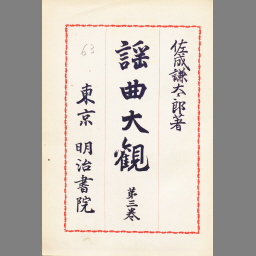 佐成謙太郎著
謡曲大観
第三巻
東京 明治書院
63